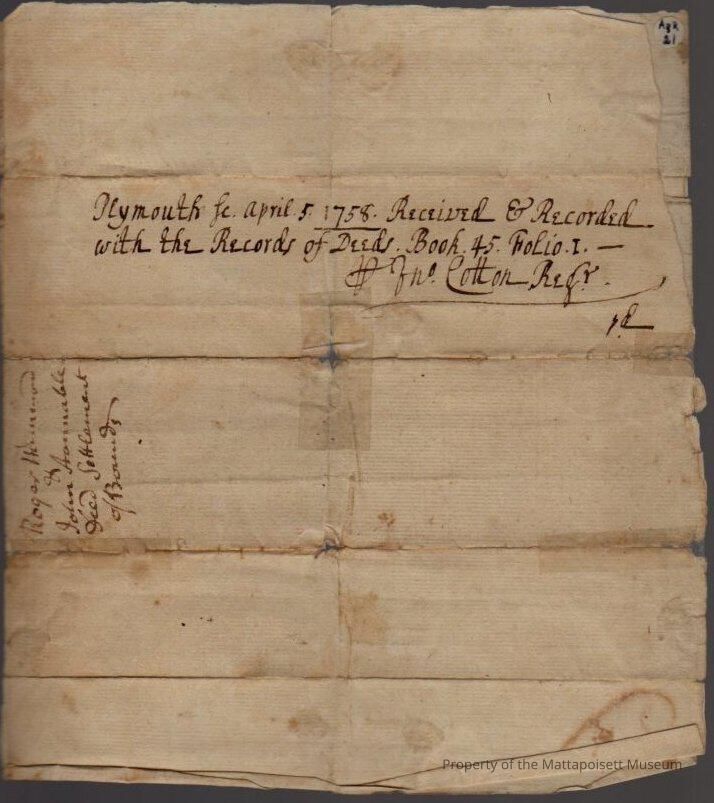 Plymouth sc. April. 5. 1758. Received & Recorded
with the Records of Deeds. Book. 45. Folio. 1. —
Jno. Cotton Regr.
pd
Roger
&
John Hannable
Deed Settlement
of Bounds
A92
21
Property of the Mattapoisett Museum